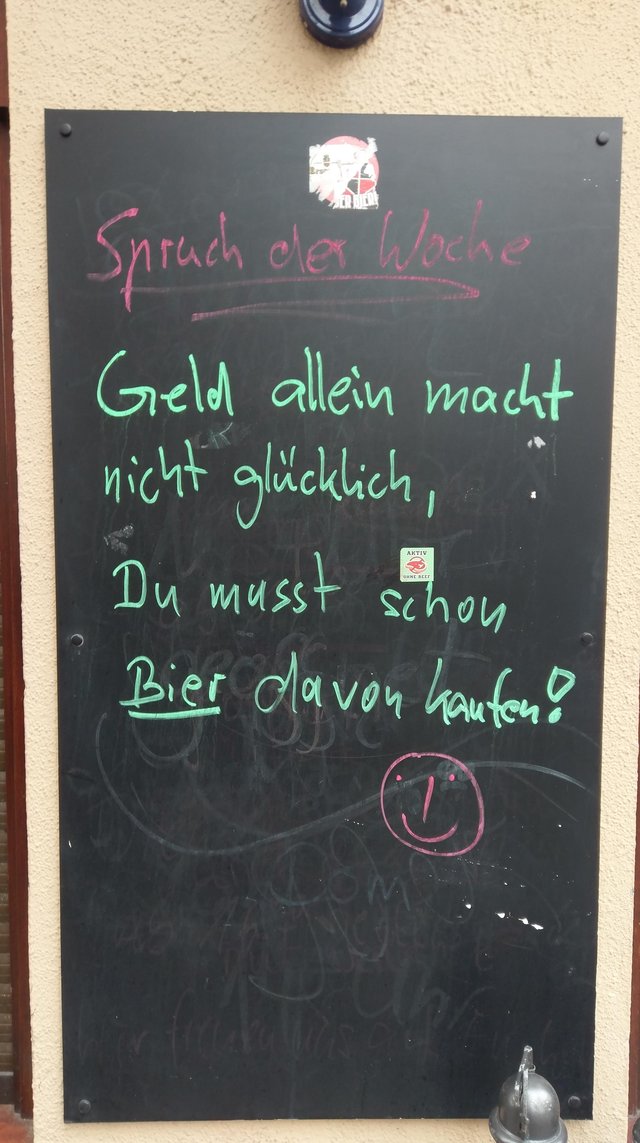 Spruch der Woche
Geld allein macht
nicht glücklich,
AKTIV
OHNE BEEF
Du musst schon
Bier davon kaufen!
Dom